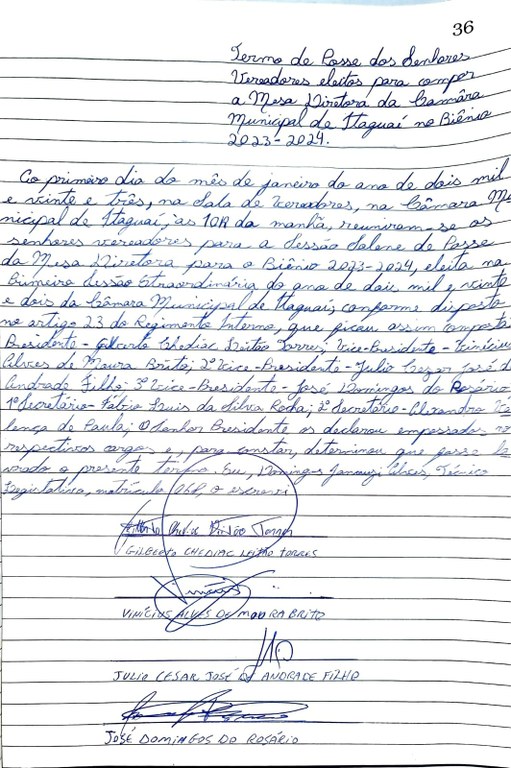 36
Termo de Posse dos Senhores
Vereadores eleitos para compor
a Mesa Diretora da Câmara
Municipal de Itaguaí no Biênio
2023-2024.
Ao primeiro dia do mês de janeiro do ano de dois mil
e vinte e três, na Sala de Vereadores, na Câmara Mu
nicipal de Itaguaí, às 10h da manhã, reuniram-se os
senhores vereadores para a sessão solene de Posse
da Mesa Diretora para o Biênio 2023-2024, eleita na
Primeira Sessão Extraordinária do ano de dois mil e vinte
e dois da Câmara Municipal de Itaguaí, conforme disposto
no artigo 23 do Regimento Interno, que ficou assim composta:
Presidente - Gilberto Chediac Leitão Torres; Vice-Presidente - Vinícius
Alves de Moura Brito; 2º Vice-Presidente - Julio Cezar José de
Andrade Filho; 3º Vice-Presidente - José Domingos do Rosário;
1º Secretário - Fábio Luis da Silva Rocha; 2º Secretário - Alexandro Va
lença de Paula; O Senhor Presidente os declarou empossados nos
respectivos cargos e, para constar, determinou que fosse la
vrado o presente termo. Eu, Domingos Alves, Técnico
Legislativo, matrícula o escrevi
Gilberto Chediac Leitão Torres
GILBERTO CHEDIAC LEITÃO TORRES
Vinícius
VINÍCIUS ALVES DE MOURA BRITO
JULIO CESAR JOSÉ DE ANDRADE FILHO
JOSÉ DOMINGOS DO ROSÁRIO